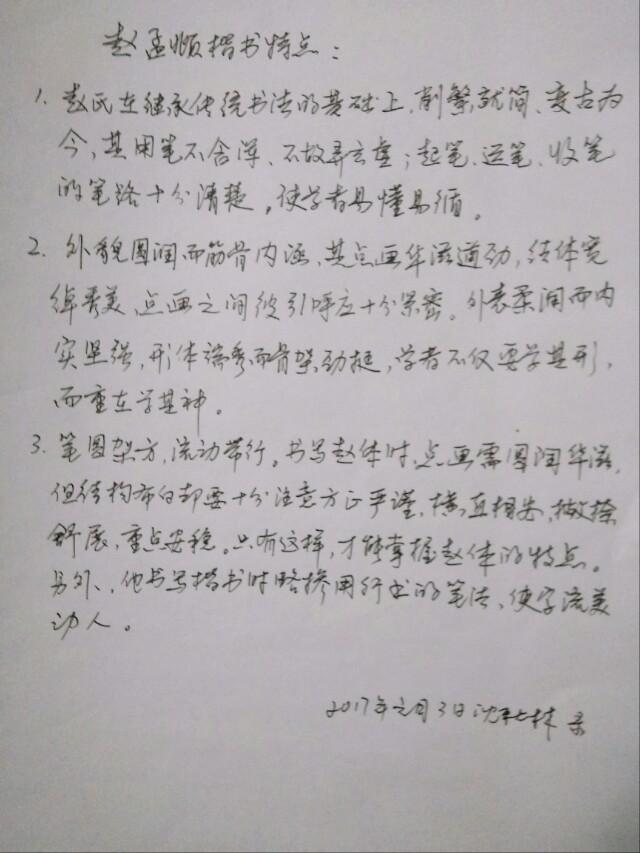 赵孟頫楷书特点：
1. 赵氏在继承传统书法的基础上，削繁就简、变古为
今，其用笔不含浑、不故弄玄虚；起笔、运笔、收笔
的笔路十分清楚，使学者易懂易循。
2. 外貌圆润而筋骨内涵，其点画华滋遒劲，结体宽
绰秀美，点画之间彼引呼应十分紧密。外表柔润而内
实坚强，形体端秀而骨架劲挺，学者不仅要学其形，
而重在学其神。
3. 笔圆架方，流动带行。书写赵体时，点画需圆润华滋，
但结构布白却要十分注意方正严谨，横直相安，撇捺
舒展，重点安稳。只有这样，才能掌握赵体的特点。
另外，他书写楷书时略掺用行书的笔法，使字流美
动人。
2017年元月3日沈 林 录